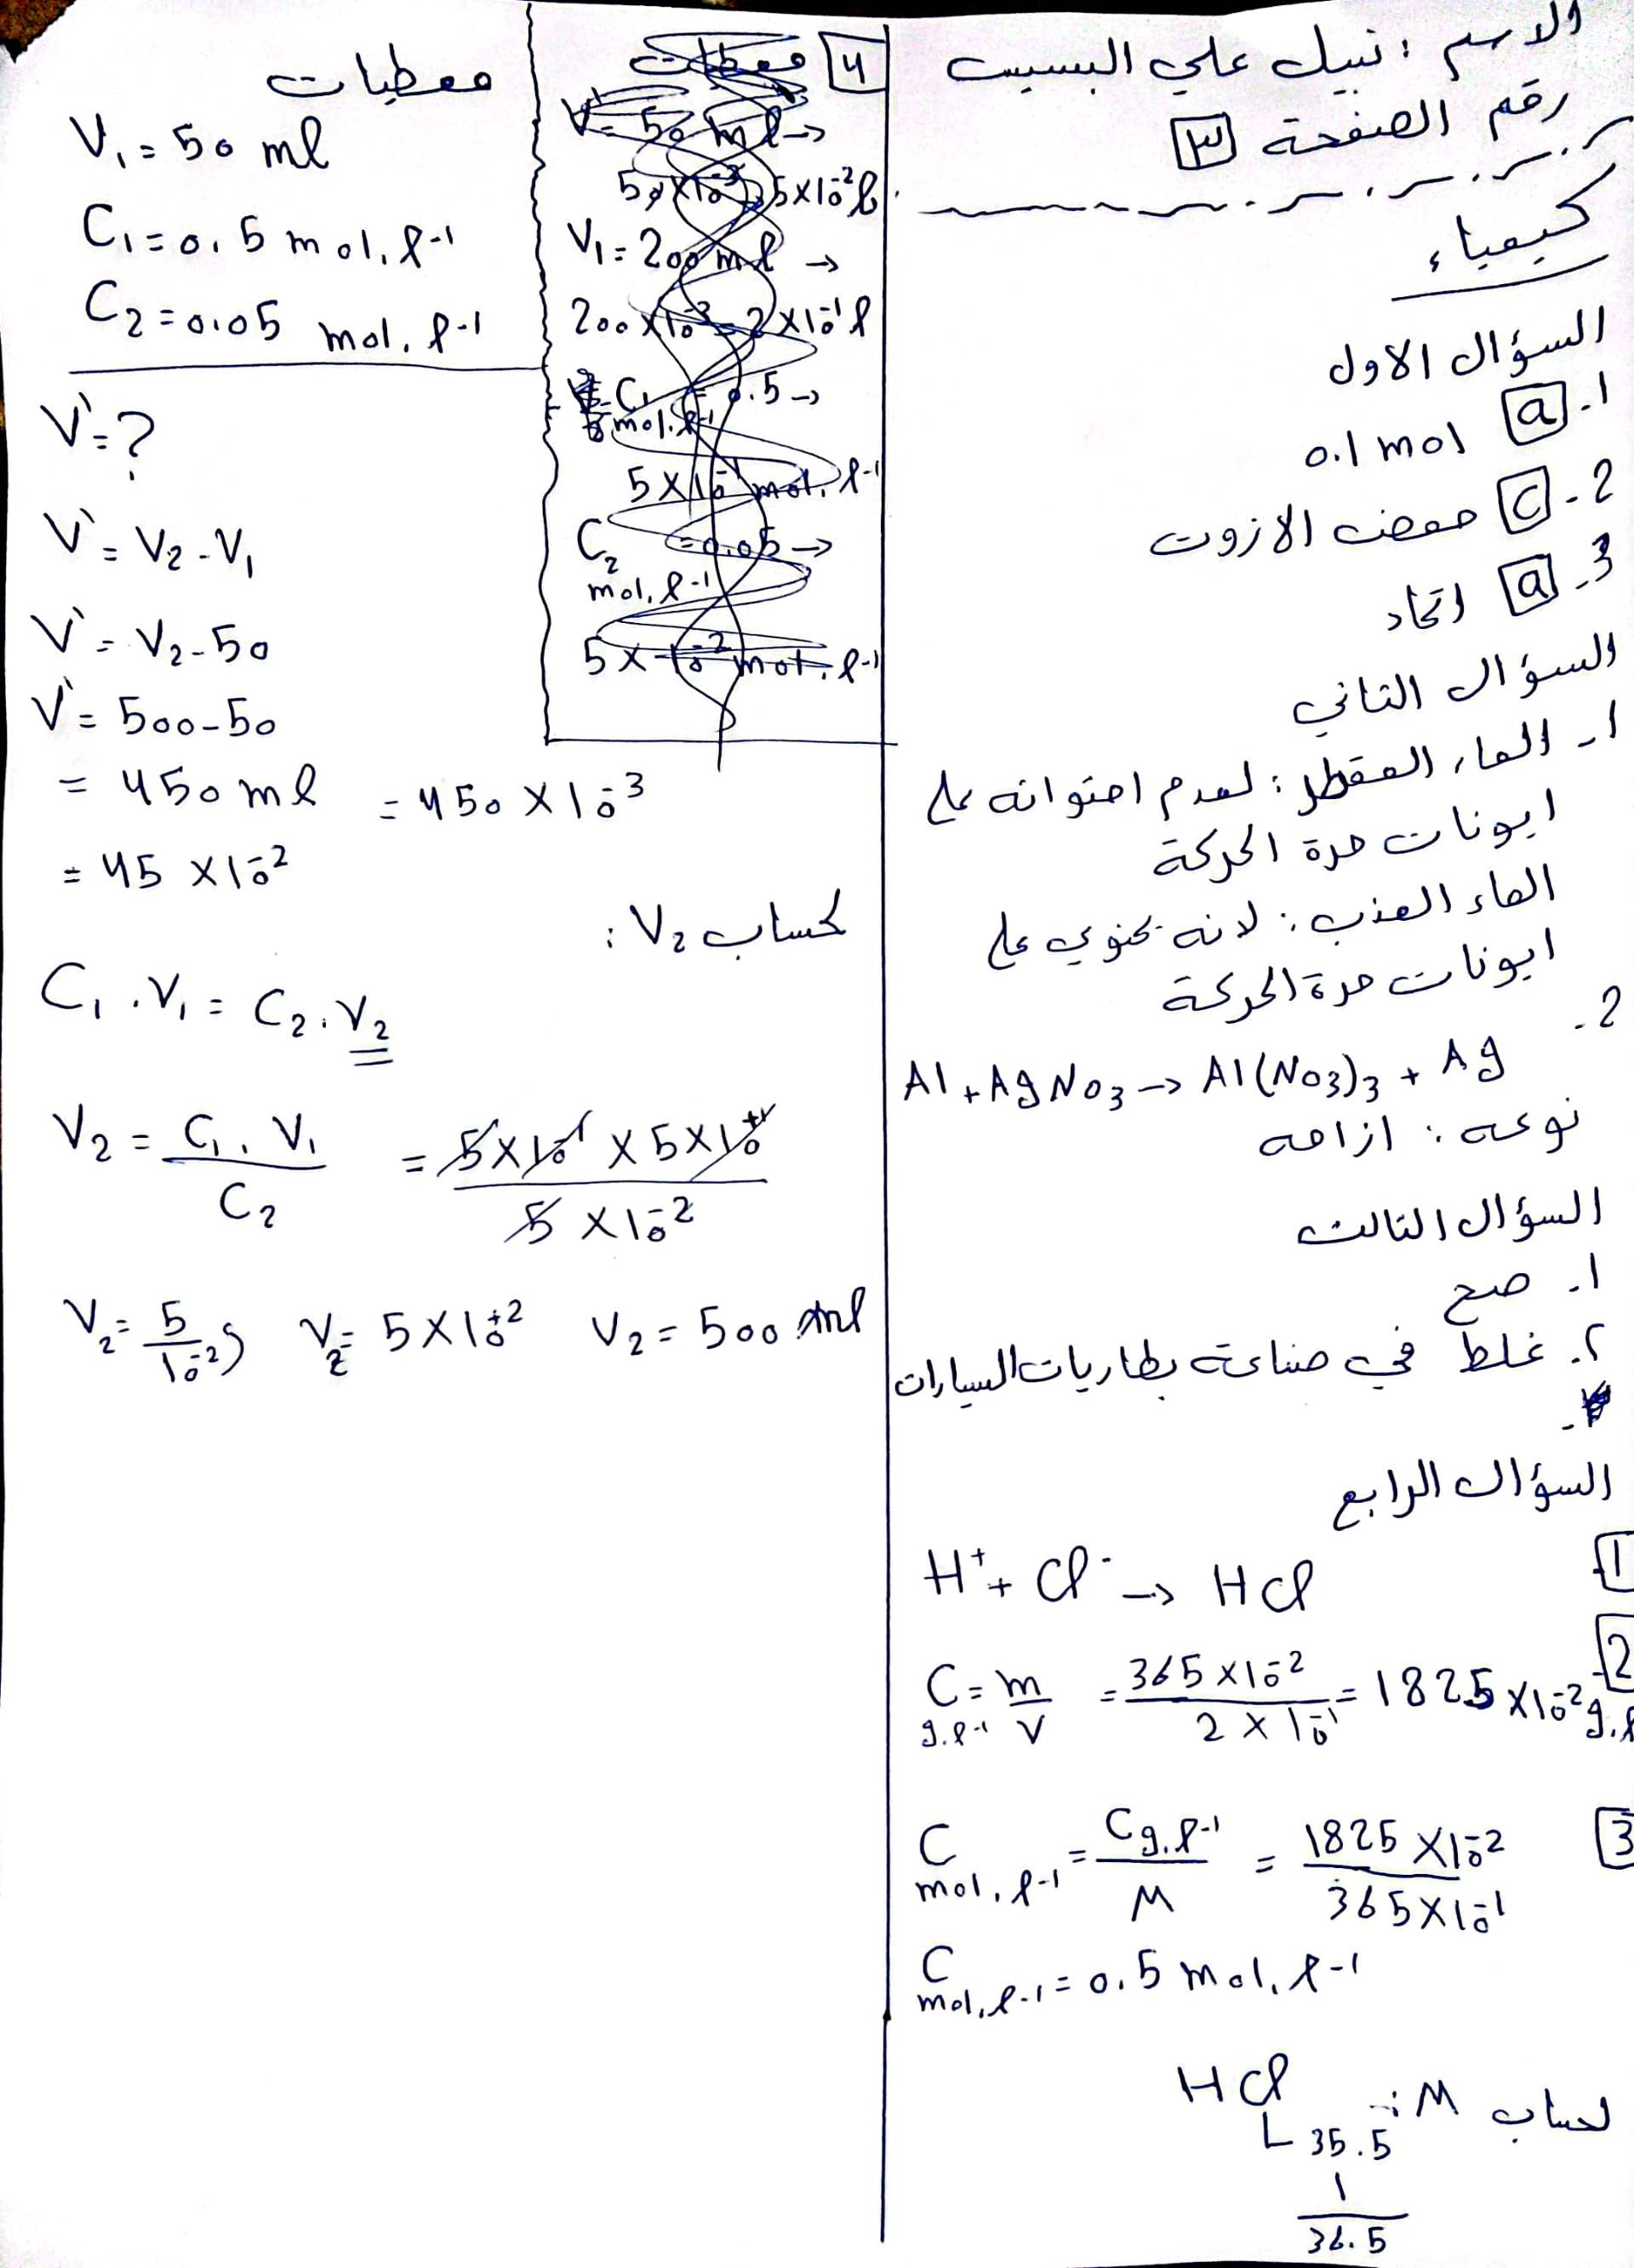 الاسم : نبيل علي البسيس
رقم الصفحة 3
كيمياء
السؤال الاول
1. a 0.1 mol
2- c حمض الازوت
3- a اتحاد
السؤال الثاني
1- الماء المقطر : لعدم احتوائه على
ايونات حرة الحركة
الماء العذب : لانه يحتوي على
ايونات حرة الحركة
2-
Al + AgNo3 → Al(No3)3 + Ag
نوعه : ازاحة
السؤال الثالث
1. صح
2. غلط في صناعة بطاريات السيارات
السؤال الرابع
1 H⁺ + Cl⁻ → HCl
2 C g.l-1 = m/V = 365×10⁻²/2×10⁻¹ = 1825×10⁻² g.l
3 C mol.l-1 = C g.l-1/M = 1825×10⁻²/365×10⁻¹
C mol.l-1 = 0.5 mol.l-1
لحساب M :
HCl
35.5
1
36.5
4 معطيات
V = 50 ml →
50×10⁻³ 5×10⁻² l
V1 = 200 ml →
200×10⁻³ = 2×10⁻¹ l
C1 = 0.5 →
mol.l-1
5×10⁻¹ mol.l-1
C2 = 0.05 →
mol.l-1
5×10⁻² mol.l-1
معطيات
V1 = 50 ml
C1 = 0.5 mol.l-1
C2 = 0.05 mol.l-1
V` = ?
V` = V2 - V1
V` = V2 - 50
V` = 500 - 50
= 450 ml = 450×10⁻³
= 45×10⁻²
لحساب V2 :
C1 . V1 = C2 . V2
V2 = C1 . V1/C2 = 5×10⁻¹ × 5×10⁺¹/5×10⁻²
V2 = 5/10⁻² V2 = 5×10⁺² V2 = 500 ml